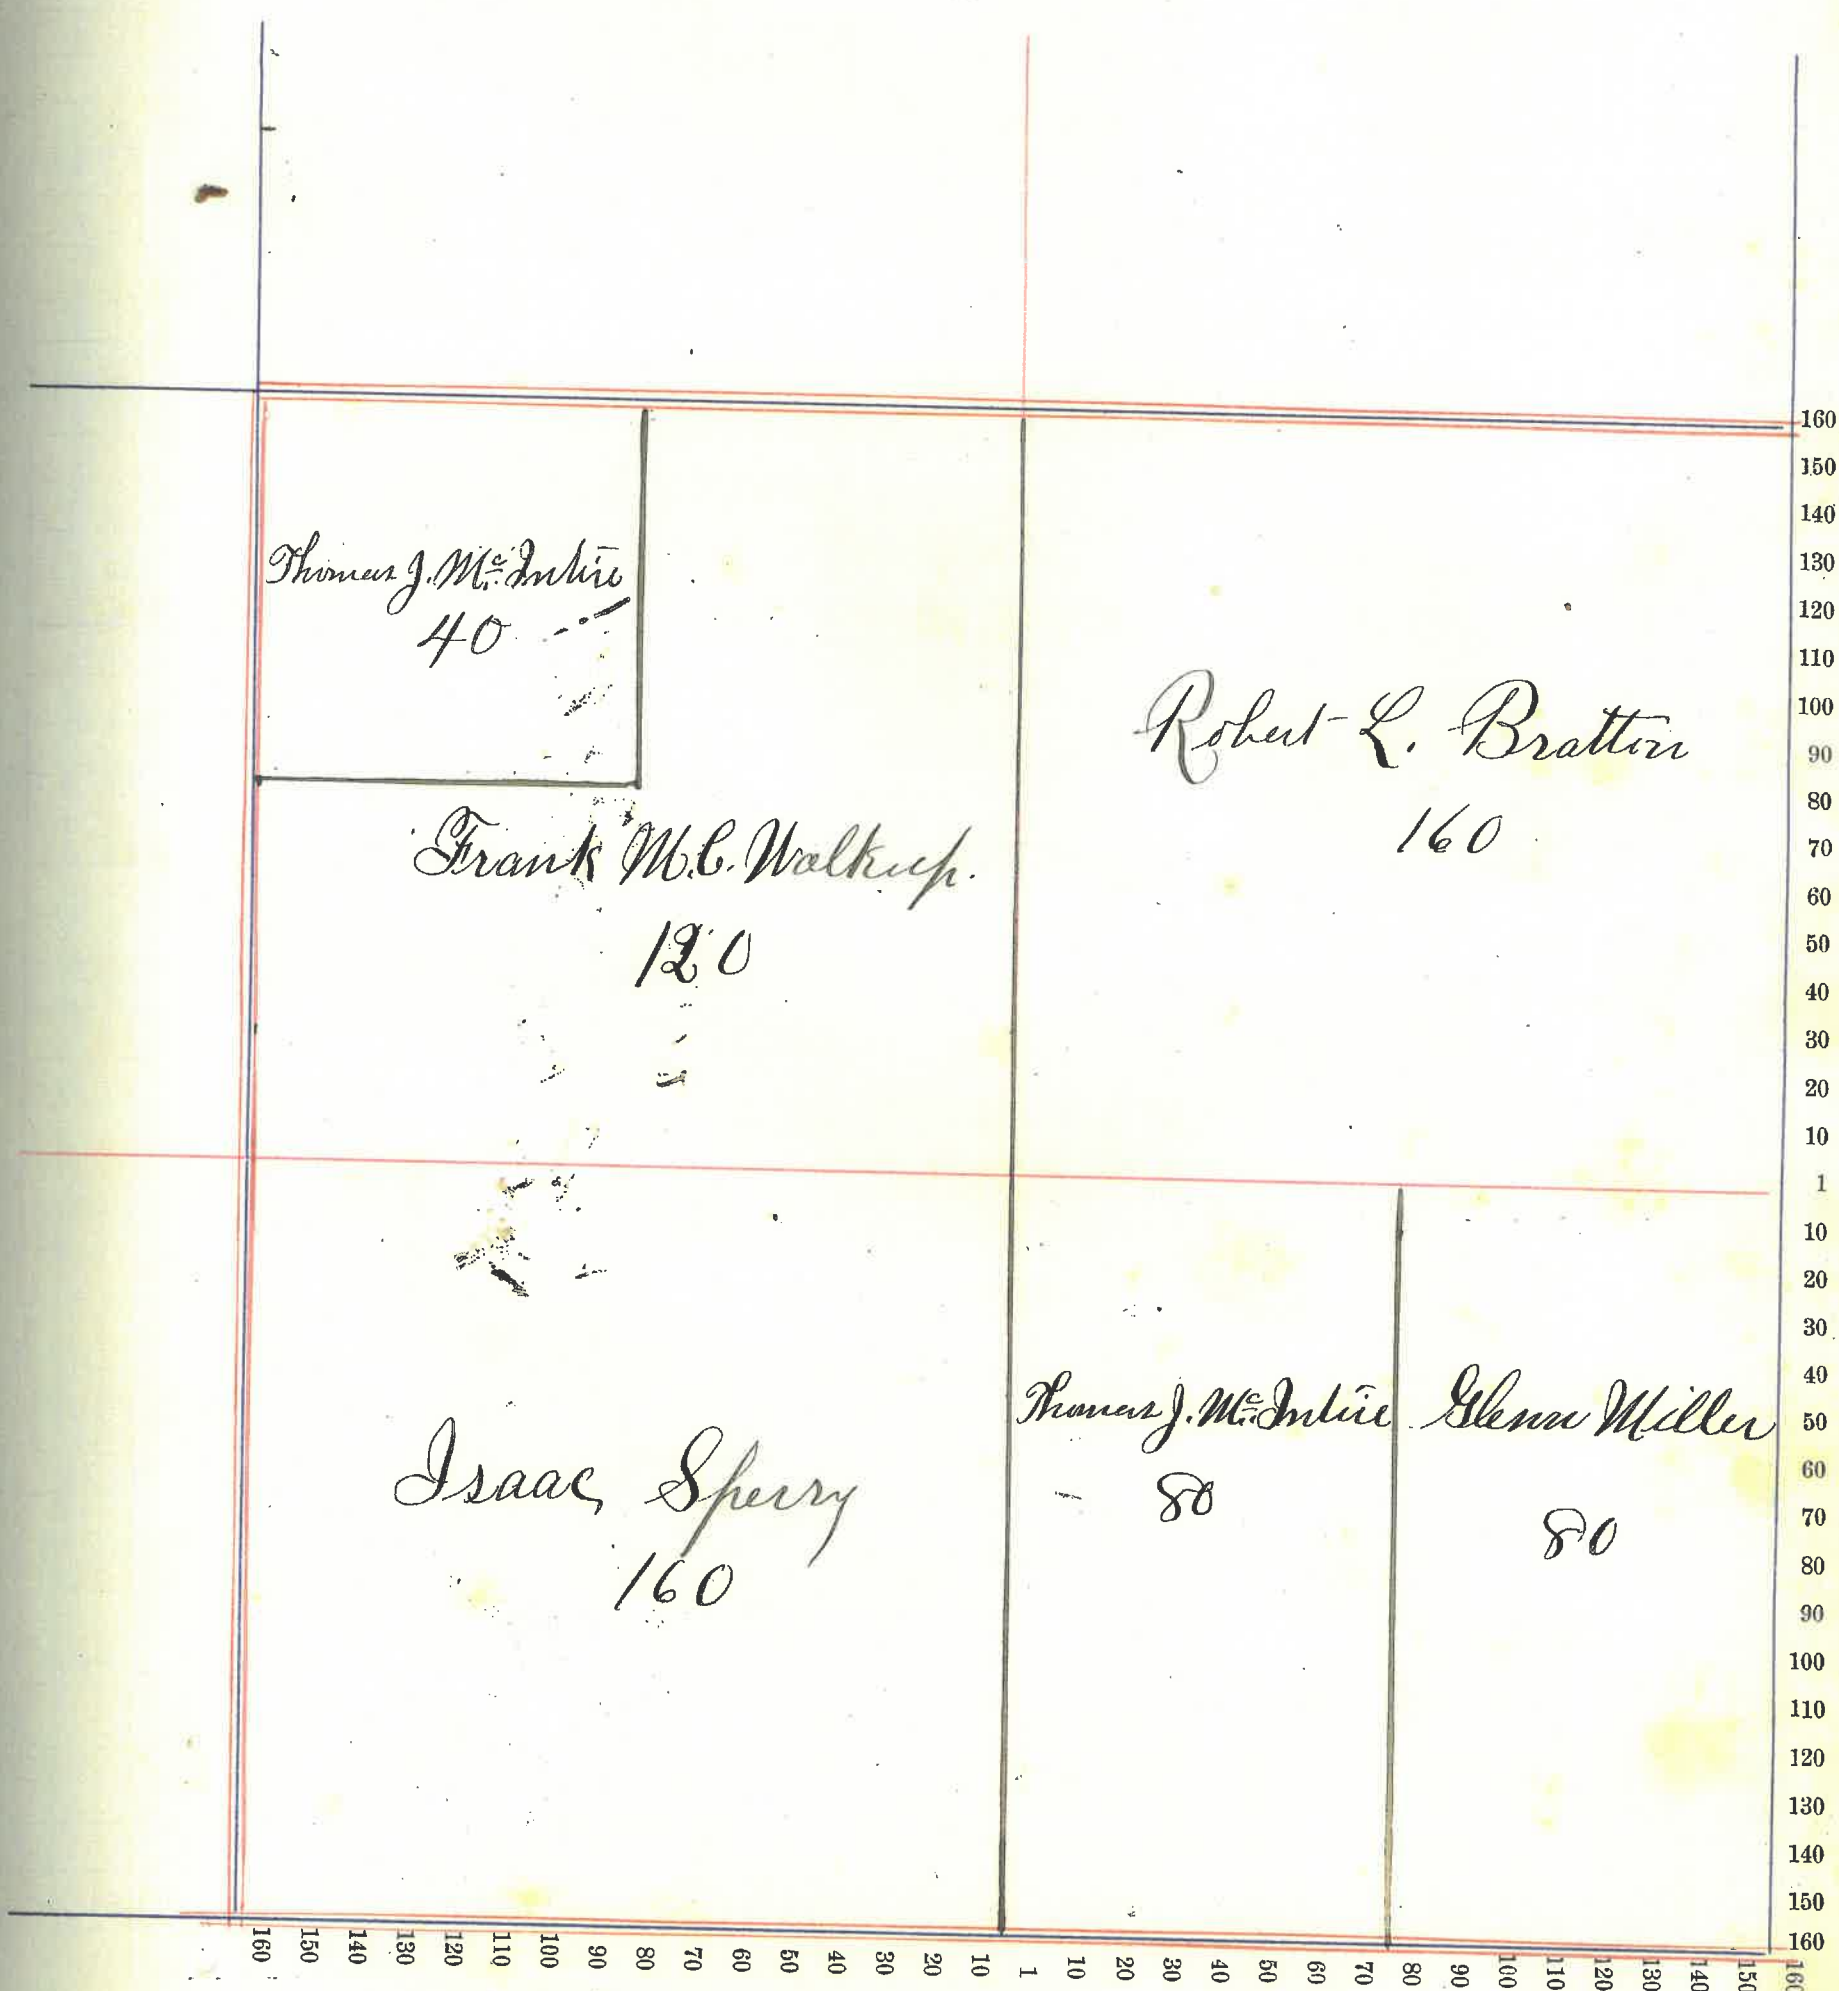 Thomas J. McIntire
40
Frank M.C. Walkup.
120
Robert L. Bratton
160
Isaac Sperry
160
Thomas J. McIntire
80
Glenn Miller
80
160
150
140
130
120
110
100
90
80
70
60
50
40
30
20
10
1
10
20
30
40
50
60
70
80
90
100
110
120
130
140
150
160
160 150 140 130 120 110 100 90 80 70 60 50 40 30 20 10 1 10 20 30 40 50 60 70 80 90 100 110 120 130 140 150 160